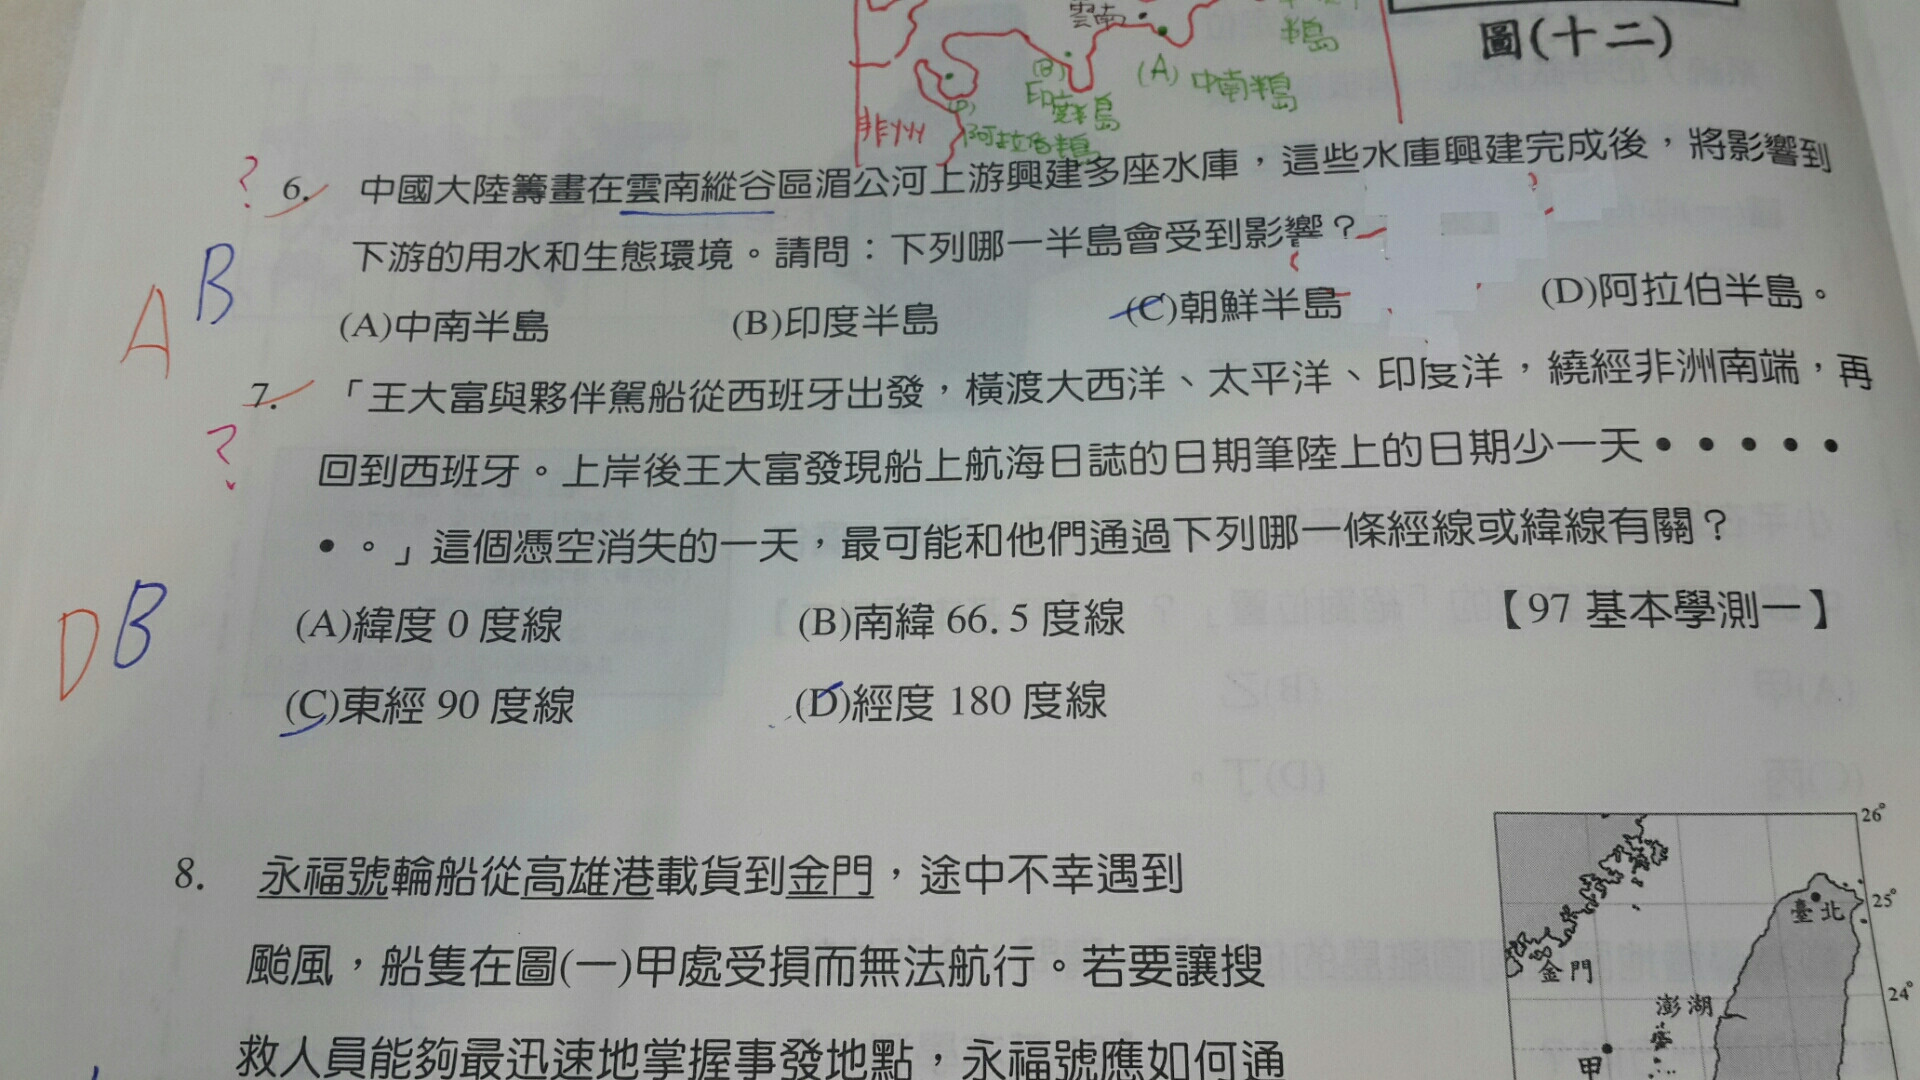 雲南
半島
圖(十二)
(B)
印度半島
(A) 中南半島
非州
阿拉伯半島
? 6. 中國大陸籌畫在雲南縱谷區湄公河上游興建多座水庫，這些水庫興建完成後，將影響到
下游的用水和生態環境。請問：下列哪一半島會受到影響？
A B
(A)中南半島 (B)印度半島 (C)朝鮮半島 (D)阿拉伯半島。
7. 「王大富與夥伴駕船從西班牙出發，橫渡大西洋、太平洋、印度洋，繞經非洲南端，再
? 回到西班牙。上岸後王大富發現船上航海日誌的日期筆陸上的日期少一天•••••
•。」這個憑空消失的一天，最可能和他們通過下列哪一條經線或緯線有關？
D B
(A)緯度 0 度線 (B)南緯 66.5 度線 【97 基本學測一】
(C)東經 90 度線 (D)經度 180 度線
8. 永福號輪船從高雄港載貨到金門，途中不幸遇到
颱風，船隻在圖(一)甲處受損而無法航行。若要讓搜
救人員能夠最迅速地掌握事發地點，永福號應如何通
26°
25°
臺北
金門
24°
澎湖
甲